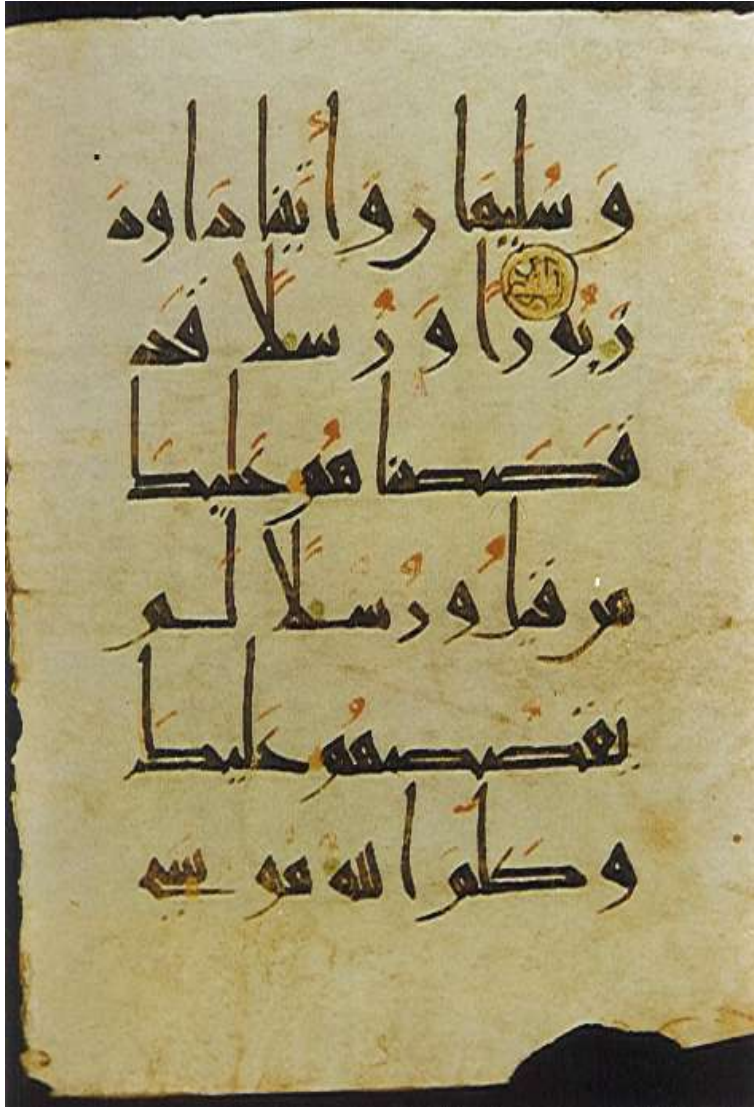 وَسُلَيمَان وَأتَينَا دَاودَ
زَبُورًا وَرُسلًا قَد
قَصَصنَاهُم عَلَيك
من قَبلُ وَرُسُلًا لَم
نَقصُصهُم عَلَيكَ
وكَلَّمَ الله مُوسى